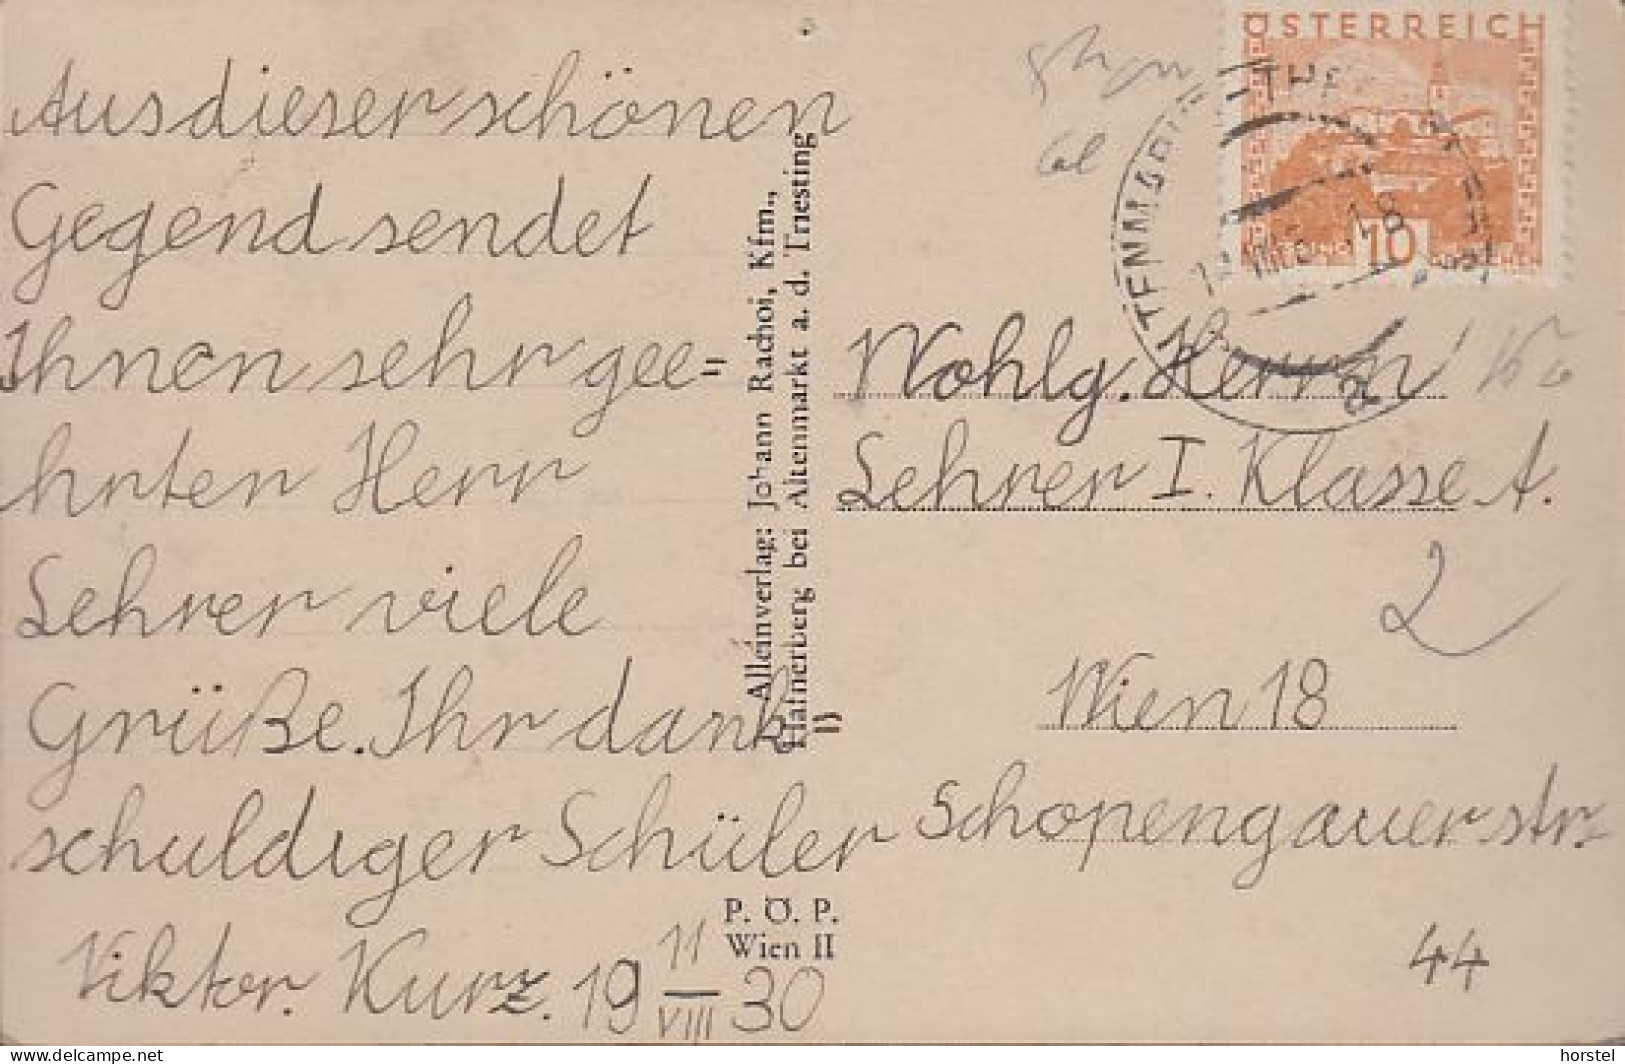 Aus dieser schönen
Gegend sendet
Ihnen sehr gee=
hrten Herr
Lehrer viele
Grüße. Ihr dank=
schuldiger Schüler
Viktor Kurz. 19 11/VIII 30
Alleinverlag: Johann Rachoi, Kfm.,
Hafnerberg bei Altenmarkt a. d. Triesting
P. Ö. P.
Wien II
ÖSTERREICH
10
TENMARK
Wohlg. Herrn
Lehrer I. Klasse A.
2
Wien 18
Schopengauerstr.
44
delcampe.net
horstel